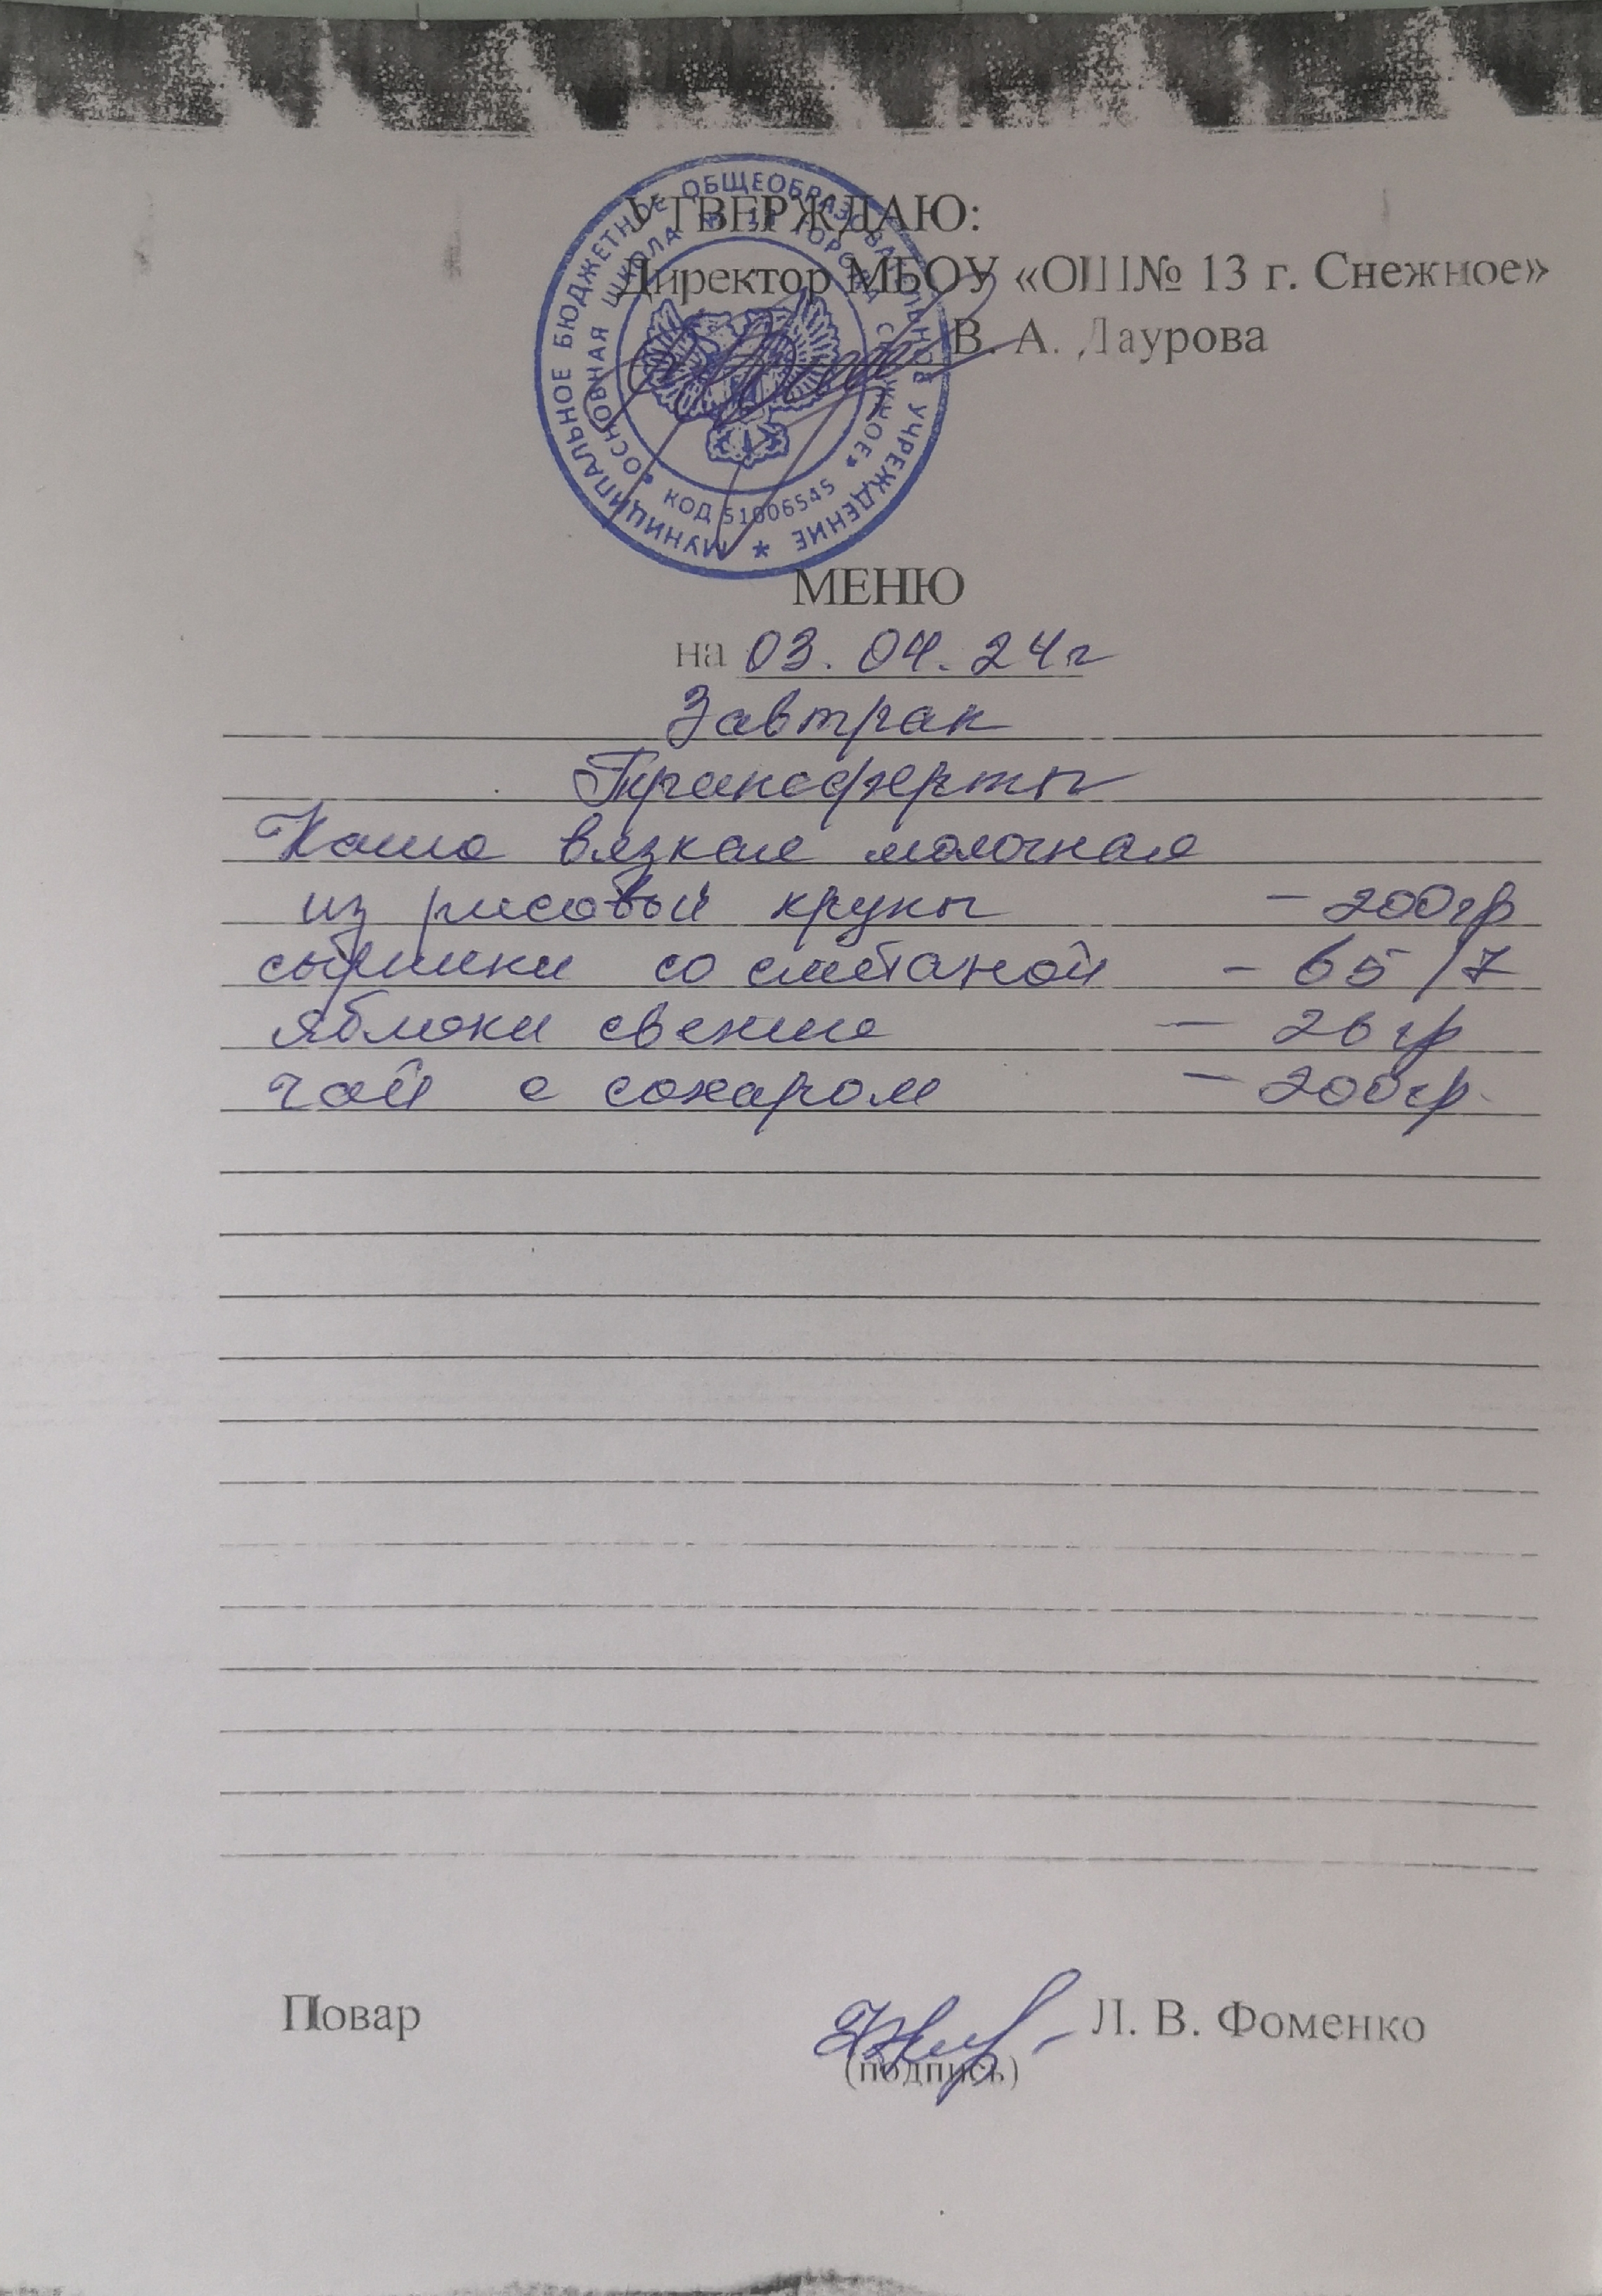 УТВЕРЖДАЮ:
Директор МБОУ «ОШ№ 13 г. Снежное»
В. А. Даурова
МУНИЦИПАЛЬНОЕ БЮДЖЕТНОЕ ОБЩЕОБРАЗОВАТЕЛЬНОЕ УЧРЕЖДЕНИЕ *
• ОСНОВНАЯ ШКОЛА № 13 ГОРОД СНЕЖНОЕ» •
КОД 51006545
МЕНЮ
на 03.04.24г
Завтрак
Трансферты
Каша вязкая молочная
из рисовый крупы - 200гр
сырники со сметаной - 65/7
яблоки свежие - 26 гр
чай с сахаром - 200гр.
Повар Л. В. Фоменко
(подпись)